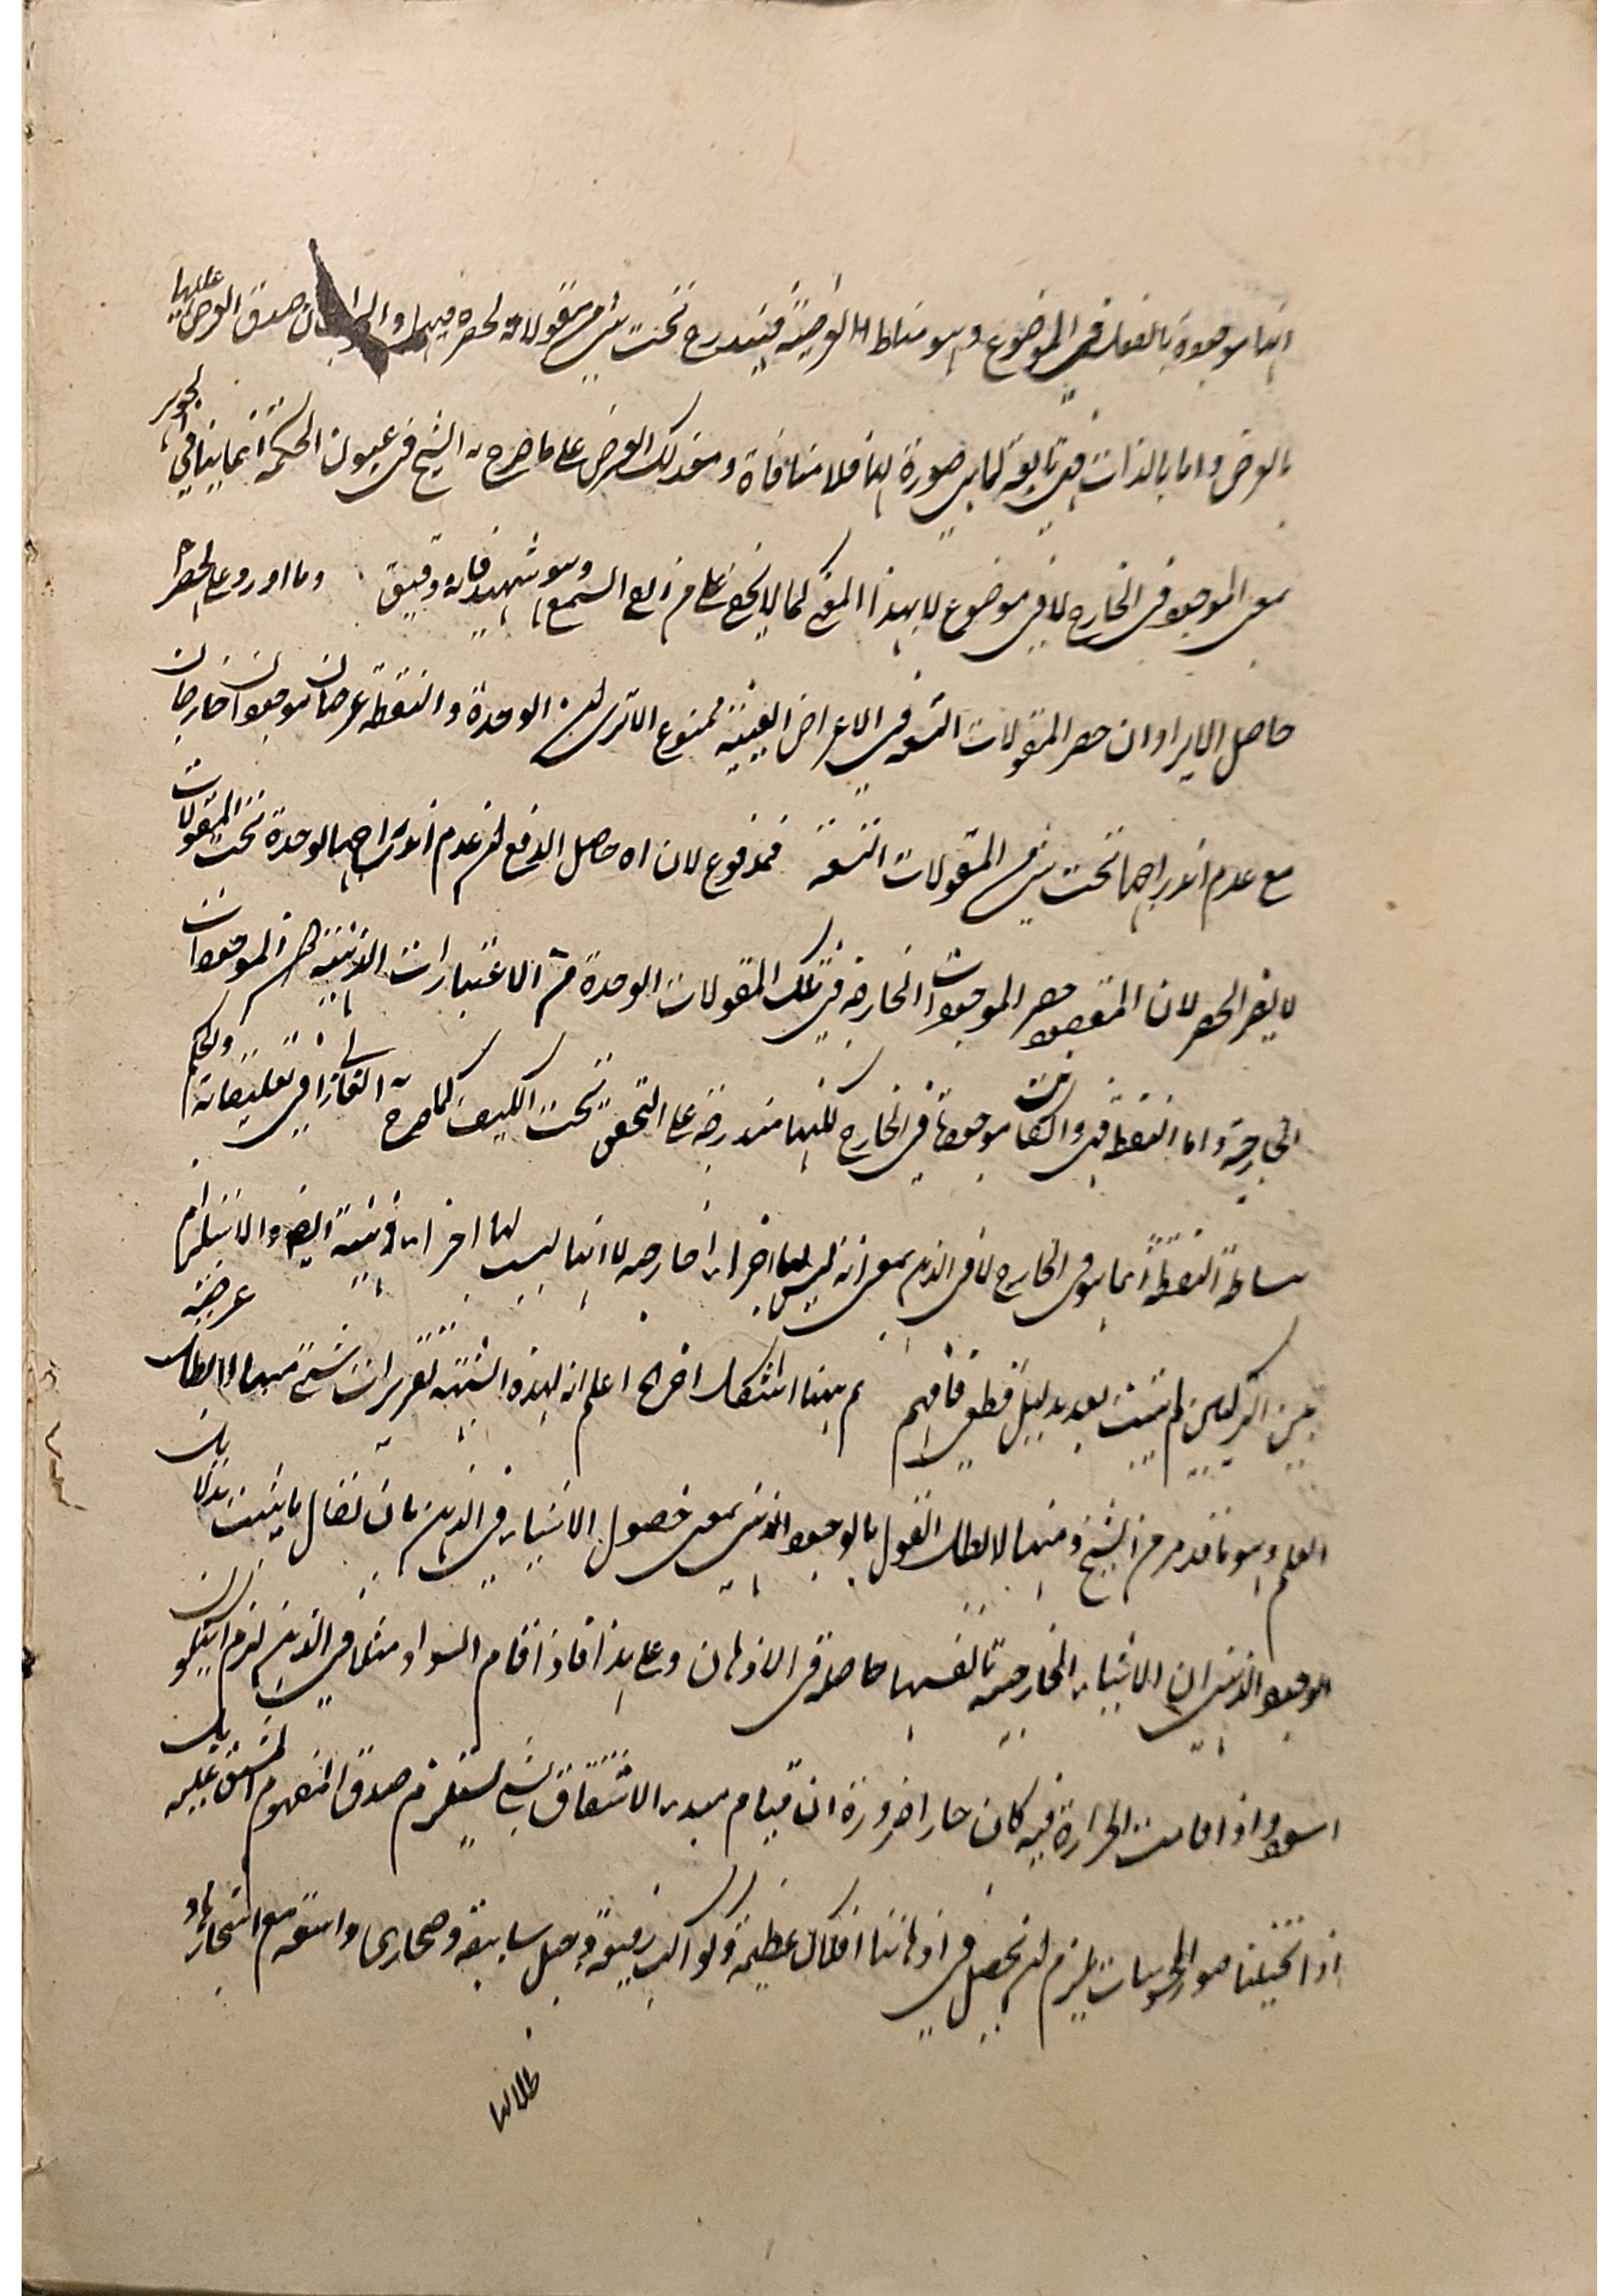 انها موجودة بالفعل في الموضوع وهو مناط العرضية فيندرج تحت شئ من مقولاته لحصره فيها والجواب ان صدق العرض عليها
بالعرض واما بالذات فهي تابعة لما هي صورة لها فلا منافاة وعند ذلك العرض على ما صرح به الشيخ في عيون الحكمة انما ينافي الجوهر
بمعنى الموجود في الخارج لا في موضوع لا بهذا المعنى كما لا يخفى على من القى السمع وهو شهيد فانه دقيق وما اورد على الحصر اه
حاصل الايراد ان حصر المقولات التسعه في الاعراض العينية ممنوع الا ترى ان الوحدة والنقطة عرضان موجودان خارجان
مع عدم اندراجهما تحت شئ من المقولات التسعه فمدفوع لان اه حاصل الدفع ان عدم اندراج الوحدة تحت المقولات
لا يضر الحصر لان المقصود حصر الموجودات الخارجة في تلك المقولات الوحدة من الاعتبارات الذهنيه لا من الموجودات
الخارجية واما النقطة فهي وان كانت موجودة في الخارج لكنها مندرجة على التحقيق تحت الكيف كما صرح به الفارابي في تعليقاته والحكم
ببساطة النقطة انما هو في الخارج لا في الذهن بمعنى انه ليس لها اجزاء خارجيه لا انها ليست لها اجزاء ذهنية ايضا والاستلزام
بين التركيبين لم يثبت بعد بدليل قطعي فافهم ثم ههنا اشكال اخر اه اعلم ان لهذه الشبهه تقريرات شتى منها لابطال عرضية
العلم وهو ما تقدم من الشيخ ومنها لابطال القول بالوجود الذهني بمعنى حصول الاشياء في الذهن بان يقال ما يثبت بدلايل
الوجود الذهني ان الاشياء الخارجيه بانفسها حاصلة في الاذهان وعلى هذا فاذا قام السواد مثلا في الذهن لزم ان يكون
اسود واذا قامت الحرارة فيه كان حارا ضرورة ان قيام مبدء الاشتقاق بشئ يستلزم صدق المفهوم المشتق عليه بل
اذا تخيلنا صور المحسوسات يلزم ان يحصل في اذهاننا افلاك عظيمة وكواكب رفيعة وجبل سابقة وصحاري واسعه مع اشجارها و